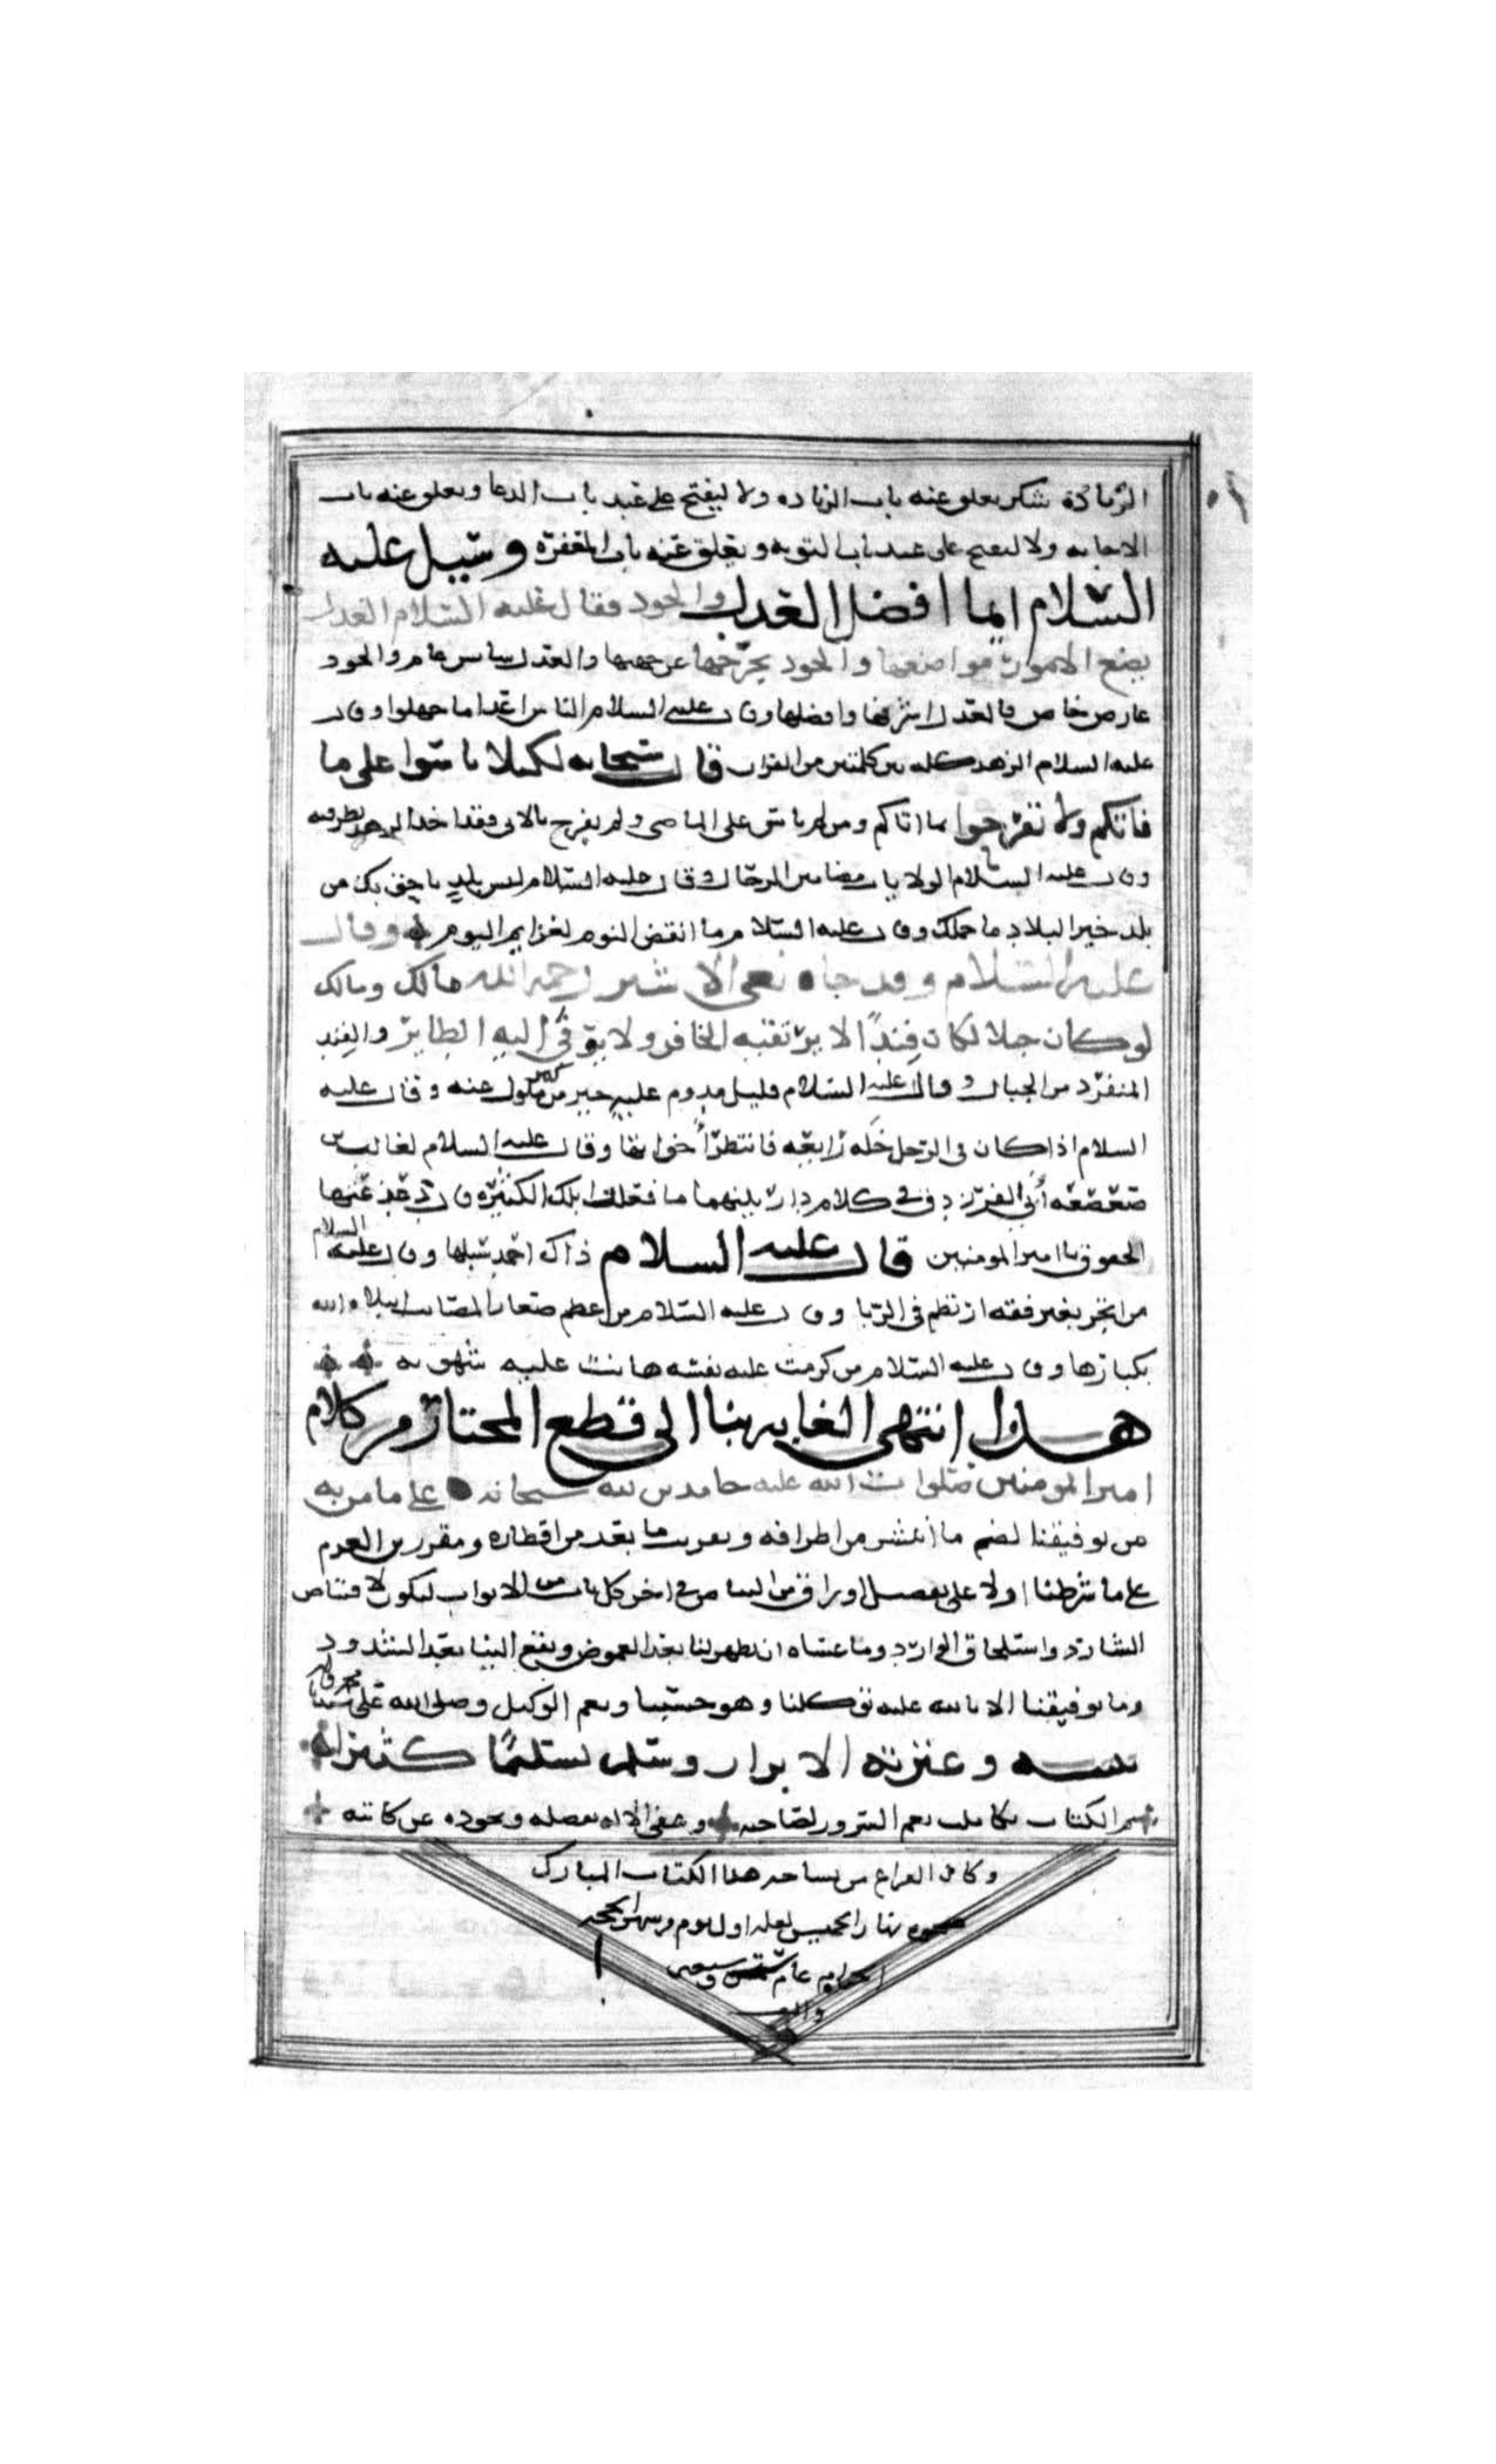 الزيادة شكر يعلق عنه باب الزياده ولا ليفتح على عبد باب الدعا ويعلق عنه باب
الاجابه ولا ليفتح على عبد باب التوبه ويغلق عنه باب المغفره وسيل عليه
السلام ايما افضل العدل والجود فقال عليه السلام العدل
يضع الامور مواضعها والجود يخرجها عن جهتها والعدل سايس عام والجود
عارض خاص فالعدل اشرفها وافضلها وقال عليه السلام الناس اعدا ما جهلوا وقال
عليه السلام الزهد كله بين كلمتين من القران قال سبحانه لكيلا تاسوا على ما
فاتكم ولا تفرحوا بما اتاكم ومن لم ياس على الماضي ولم يفرح بالاتي فقد اخذ الزهد بطرفيه
وقال عليه السلام الولايات مضامير الرجال وقال عليه السلام ليس بلد باحق بك من
بلد خير البلاد ما حملك وقال عليه السلام ما انقض النوم لعزايم اليوم وقال
عليه السلام وقد جاه نعي الاشتر رحمه الله مالك ومالك
لو كان جبلا لكان فندا لا يرتقيه الحافر ولا يوفي اليه الطاير والفند
المنفرد من الجبال وقال عليه السلام قليل مدوم عليه خير من كثير مملول عنه وقال عليه
السلام اذا كان في الرجل خله رايعه فانتظر اخواتها وقال عليه السلام لغالب بن
صعصعه ابي الفرزدق في كلام دار بينهما ما فعلت ابلك الكثيره قال ذعذعتها
الحقوق يا امير المومنين قال عليه السلام ذاك احمد سبلها وقال عليه السلام
من اتجر بغير فقه ارتطم في الربا وقال عليه السلام من عظم صغار المصايب ابتلاه الله
بكبارها وقال عليه السلام من كرمت عليه نفسه هانت عليه شهوته
هذا انتهى الغايه بنا الى قطع المختار من كلام
امير المومنين صلوات الله عليه حامدين لله سبحانه على ما من به
من توفيقنا لضم ما انتشر من اطرافه وتقريب ما بعد من اقطاره ومقررين العزم
على ما شرطنا اولا على تفصيل اوراق من البياض في اخر كل باب من الابواب ليكون لاقتناص
الشارد واستلحاق الوارد وما عساه ان يظهر لنا بعد الغموض ويقع الينا بعد الشذوذ
وما توفيقنا الا بالله عليه توكلنا وهو حسبنا ونعم الوكيل وصلى الله على سيدنا محمد
نبيه وعترته الابرار وسلم تسليما كثيرا
تم الكتاب تكاملت نعم السرور لصاحبه وعفى الاله بفضله وبجوده عن كاتبه
وكان الفراغ من نساخه هذا الكتاب المبارك
ضحوه نهار الخميس لعله اول يوم من شهر الحجه
الحرام عام وسبعين
والف